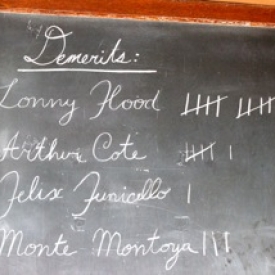 Demerits:
Lonny Flood
Arthur Cote
Felix Funicello
Monte Montoya